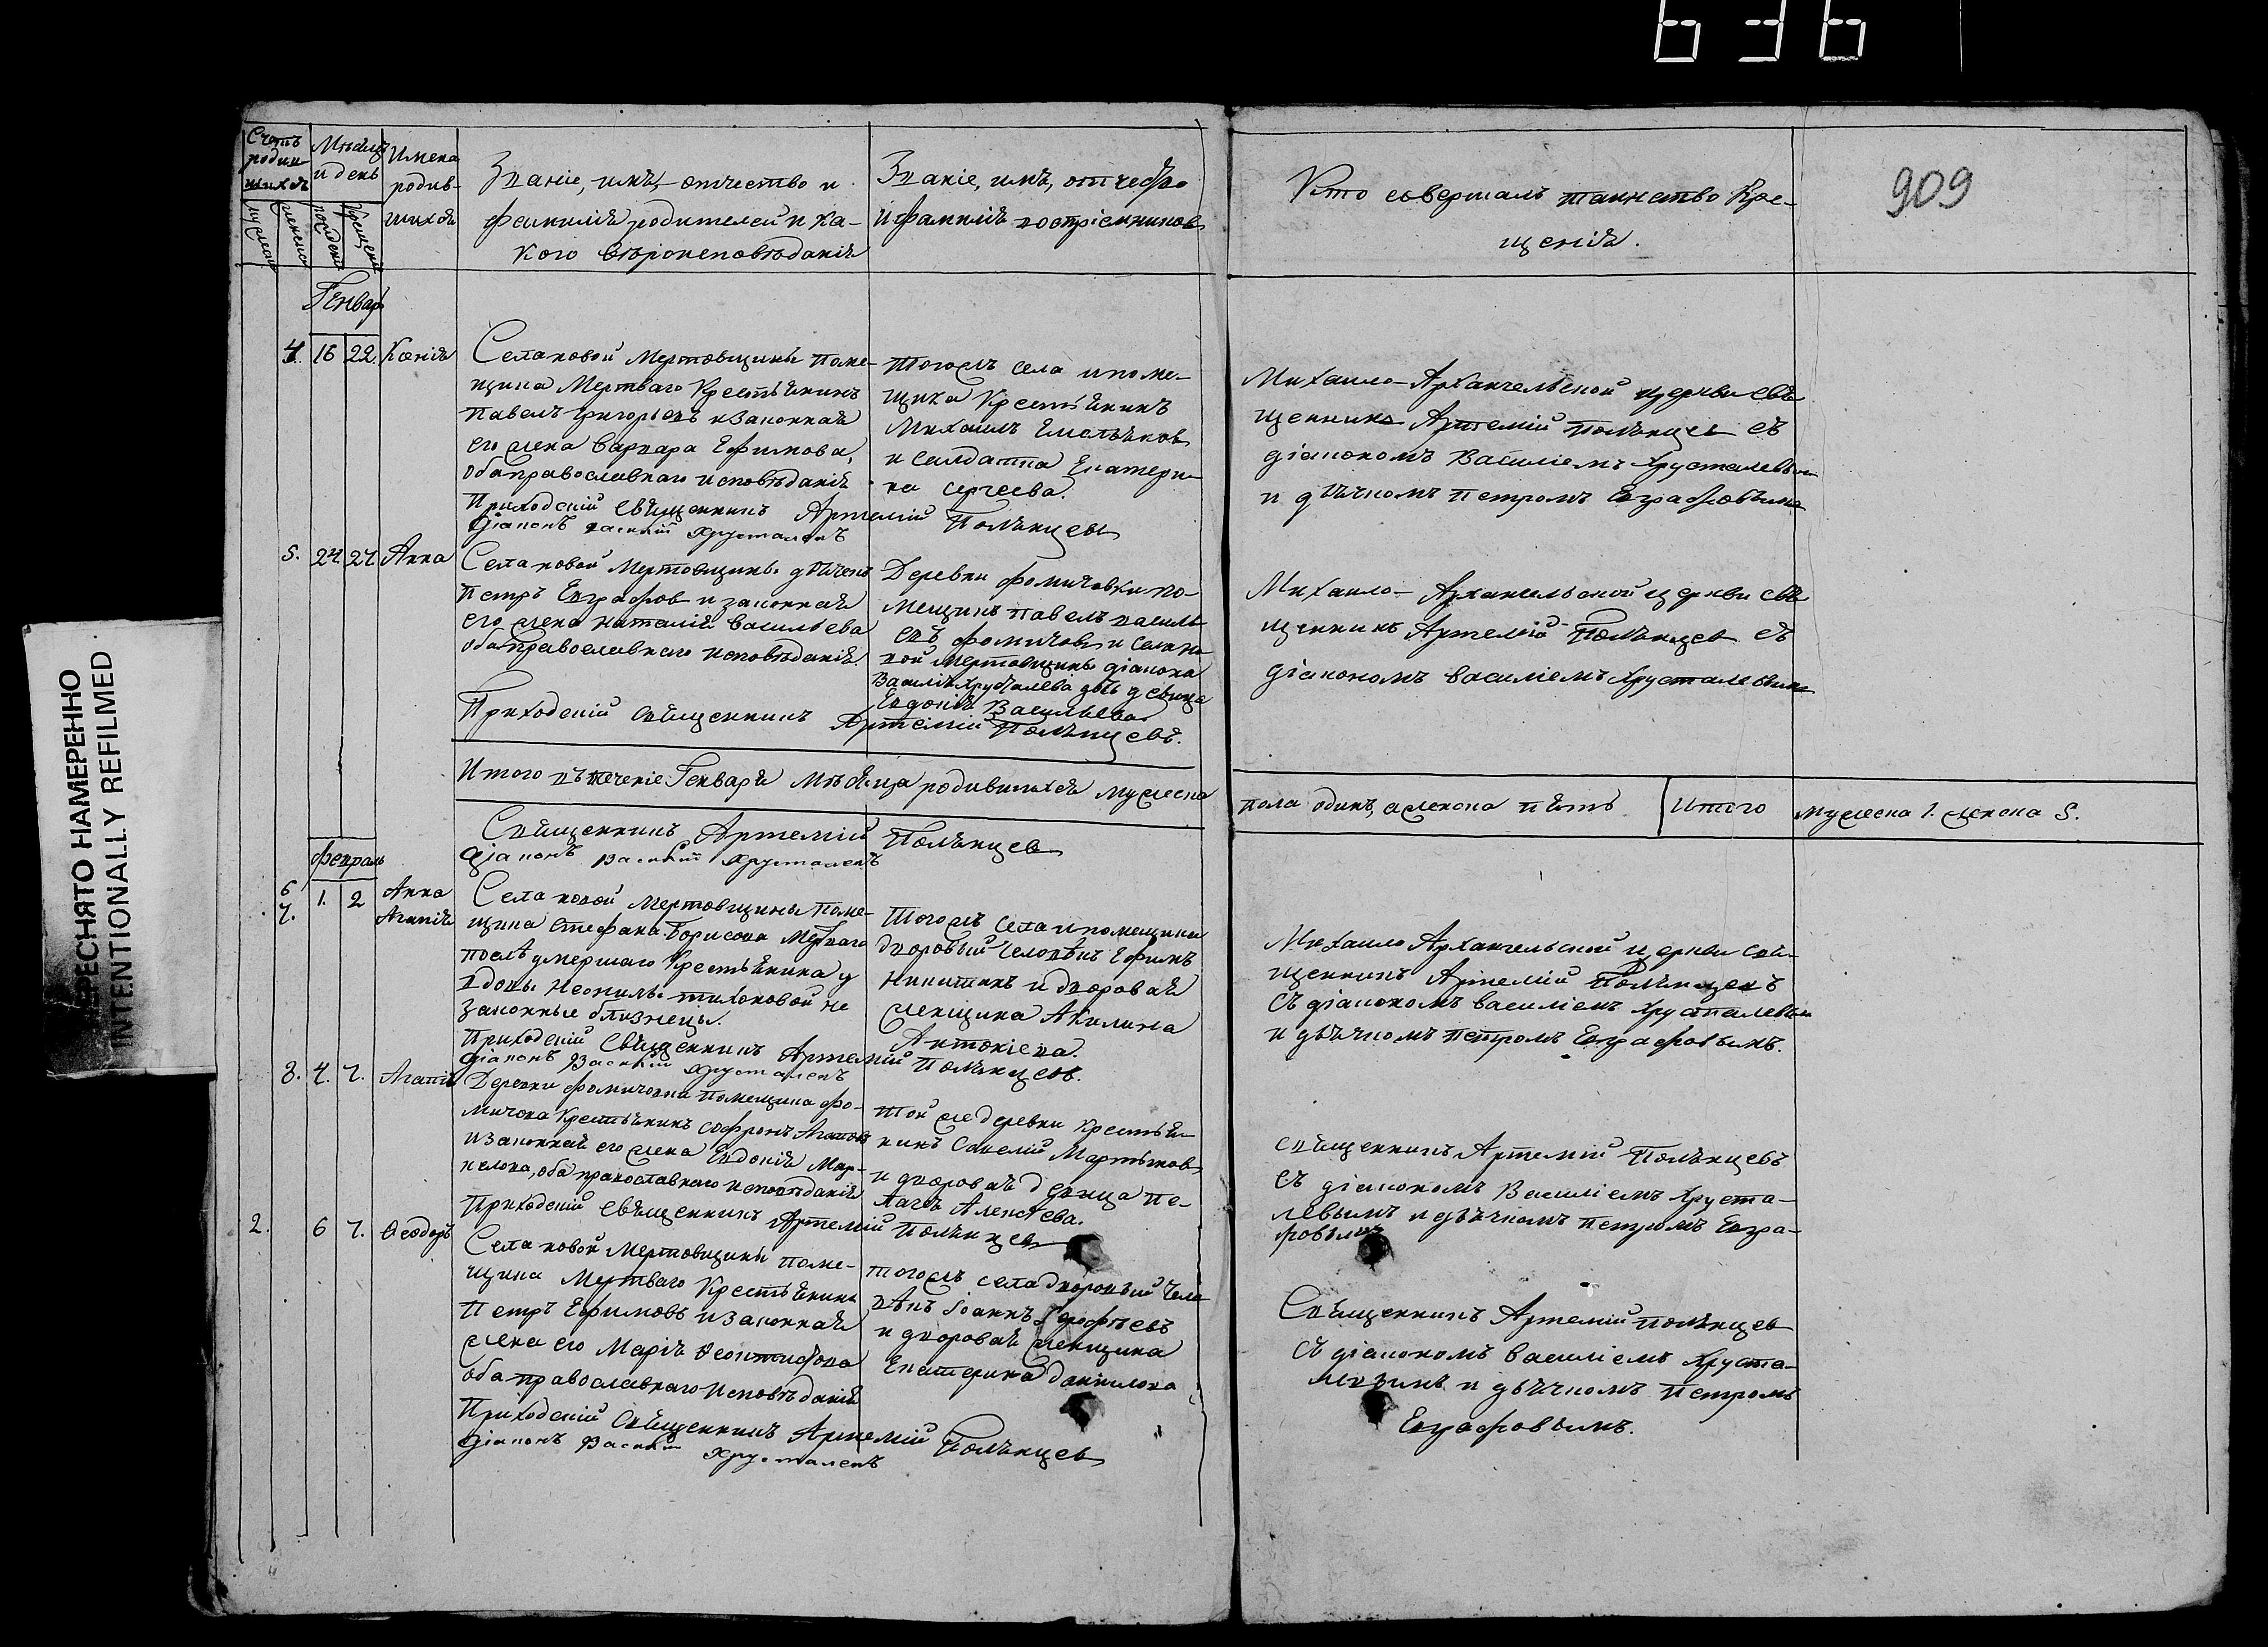 636
909
ПЕРЕСНЯТО НАМЕРЕННО
INTENTIONALLY REFILMED
Счетъ родив-шихся
Мѣсяцъ и день
Имена родив-шихся
Званіе, имя, отчество и
фамилія родителей и ка-
кого вѣроисповѣданія
Званіе, имя, отчество
и фамилія воспріемниковъ
Кто совершалъ таинство Кре-
щенія.
Генварь
4. 16 22. Ксенія
Села новой Мертовщины поме-
щика Мертваго Крестьянинъ
Павелъ Григорьевъ и законная
его жена Варвара Ефимова,
оба православнаго исповѣданія
Приходскій Священникъ Артемій Полянцевъ
Діаконъ Василій Хрусталевъ
тогожъ села и поме-
щика Крестьянинъ
Михаилъ Емельяновъ
и салдатка Екатери-
на Сергеева.
Михаило-Архангельской церкви свя
щенникъ Артемій Полянцевъ съ
діакономъ Василіемъ Хрусталевым
и дьячкомъ Петромъ Евграфовымъ
5. 24. 27. Анна
Села новой Мертовщины дьячекъ
Петръ Евграфовъ и законная
его жена Наталія Васильева
оба православнаго исповѣданія.
Приходскій Священникъ Артемій Полянцевъ.
Деревни Фомичовки по-
мещикъ Павелъ Василь
евъ Фомичовъ и села но
вой Мертовщины діакона
Василія Хрусталева дочь девица
Евдокія Васильева.
Михаило-Архангельской церкви свя
щенникъ Артемій Полянцевъ съ
діакономъ Василіемъ Хрусталевымъ
Итого въ теченіе Генваря Мѣсяца родившихся мужеска
пола одинъ, а женска пять Итого мужеска 1. женска 5.
Священникъ Артемій Полянцевъ
Діаконъ Василій Хрусталевъ
Февраль
6 1. 2 Анна
7. Агапія
Села новой Мертовщины поме-
щика Стефана Борисова Мертваго
послѣ умершаго Крестьянина у
вдовы Неонилы Тихоновой не
законные близнецы.
Приходскій Священникъ Артемій Полянцевъ.
Діаконъ Василій Хрусталевъ
Тогожъ села и помещика
дворовый человѣкъ Ефимъ
Никитинъ и дворовая
женщина Акилина
Антоніева.
Михаило Архангельской церкви свя-
щенникъ Артемій Полянцевъ
съ діакономъ Василіемъ Хрусталевым
и дьячкомъ Петромъ Евграфовымъ.
8. 4. 7. Агапія
Деревни Фомичовки помещика Фо-
мичова Крестьянинъ Софронъ Агаповъ
и законная его жена Евдокія Мар-
келова, оба православнаго исповѣданія
Приходскій Священникъ Артемій Полянцевъ
той же деревни Крестьян
никъ Савелій Мартыновъ
и дворовая девица Пе-
лагея Алексѣева.
Священникъ Артемій Полянцевъ
съ діакономъ Василіемъ Хруста-
левымъ и дьячкомъ Петромъ Евгра-
фовымъ
2. 6 7. Ѳеодоръ
Села новой Мертовщины поме-
щика Мертваго Крестьянинъ
Петръ Ефимовъ и законная
жена его Марія
оба православнаго исповѣданія
Приходскій Священникъ Артемій Полянцевъ
Діаконъ Василій Хрусталевъ
тогожъ села дворовый чело
вѣкъ Іоаннъ
и дворовая женщина
Екатерина Данилова
Священникъ Артемій Полянцевъ
съ діакономъ Василіемъ Хруста-
левымъ и дьячкомъ Петромъ
Евграфовымъ.